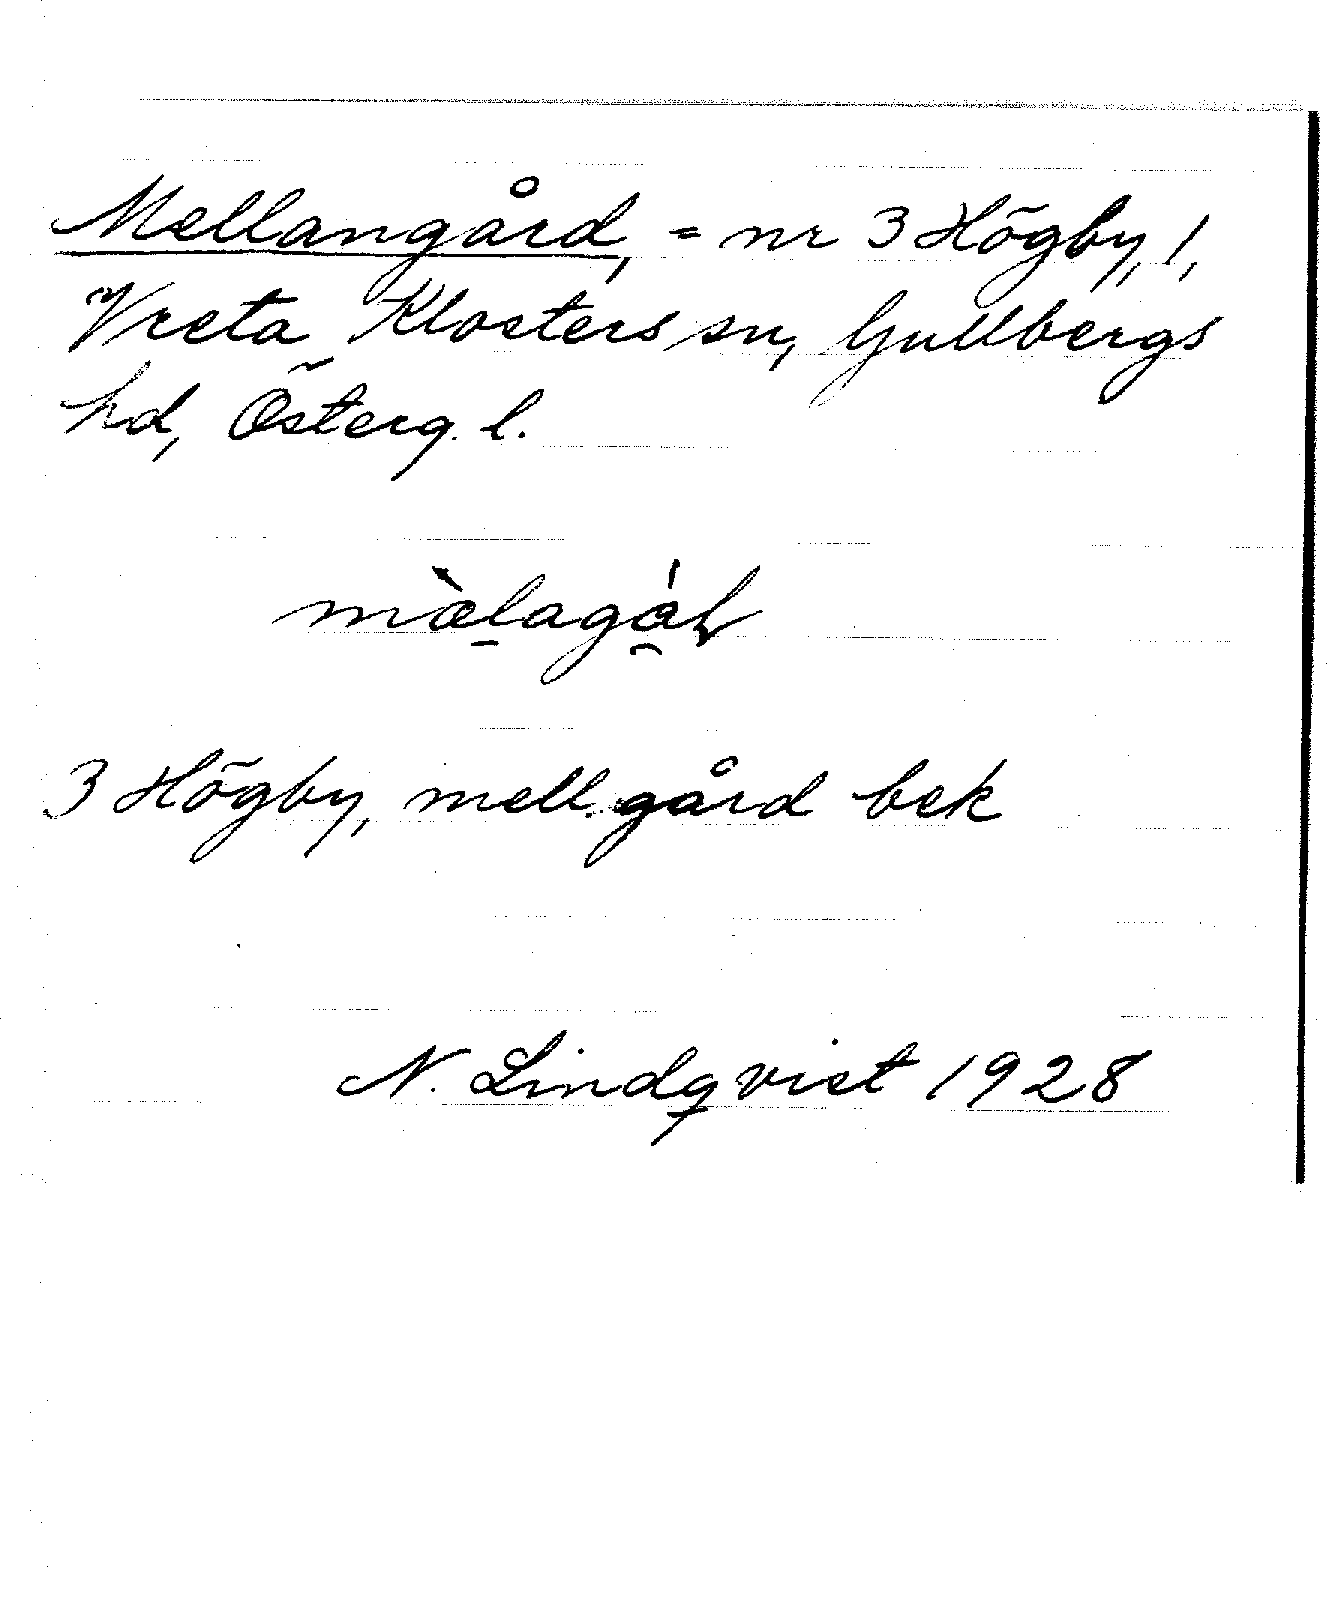 Mellangård, = nr 3 Högby, 1,
Vreta Klosters sn, Gullbergs
hd, Österg. l.
3 Högby, mell.gård bek
N. Lindqvist 1928